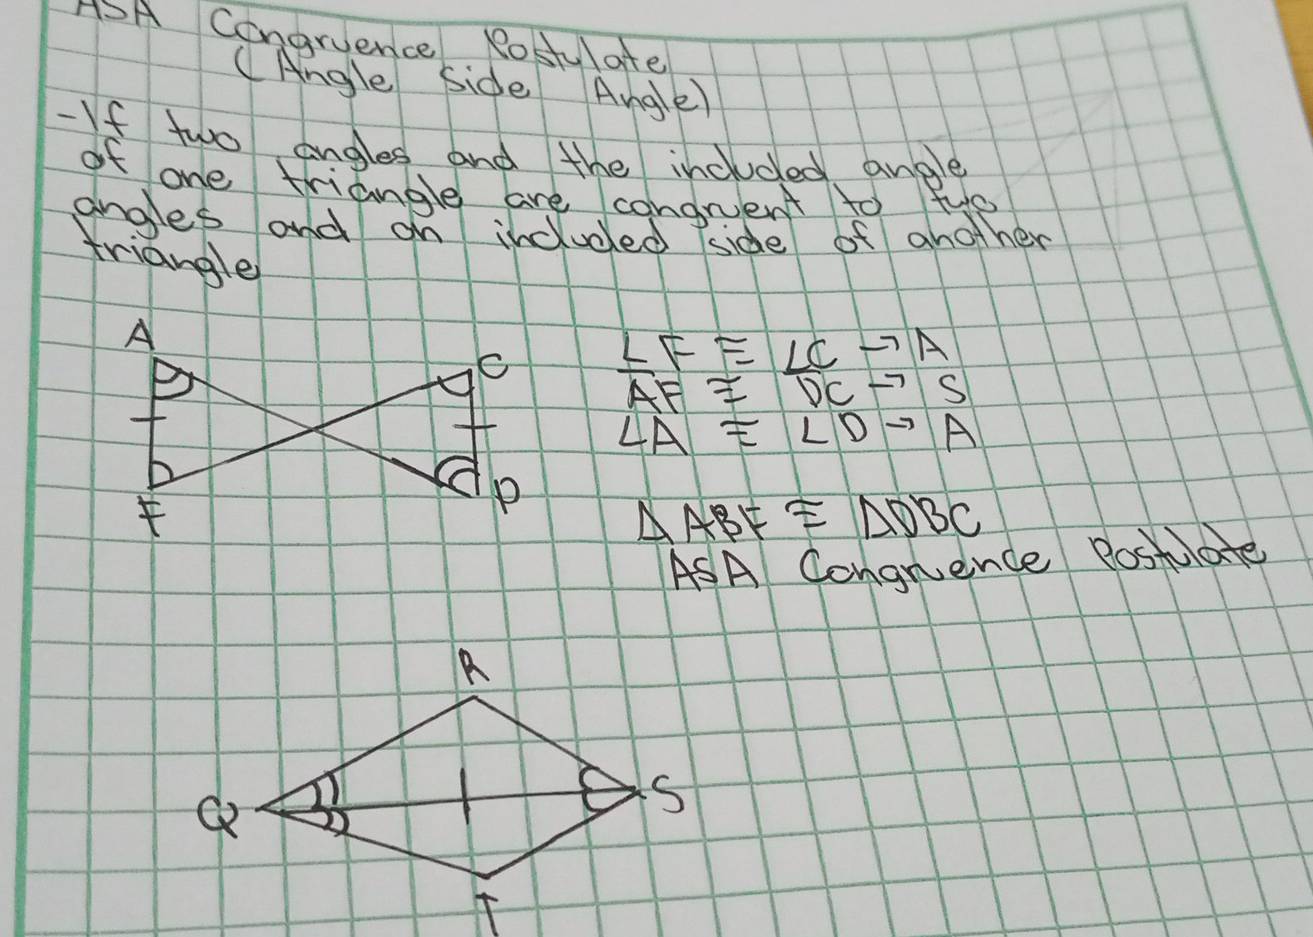 ASA Congruence Postulate
(Angle Side Angle)
-If two angles and the included angle
of one triangle are congruent to two
angles and an included side of another
triangle
A
C
F
D
∠F ≅ ∠C → A
A͞F͞ ≅ D͞C͞ → S
∠A ≅ ∠D → A
△ABF ≅ △DBC
ASA Congruence Postulate
R
Q
S
T